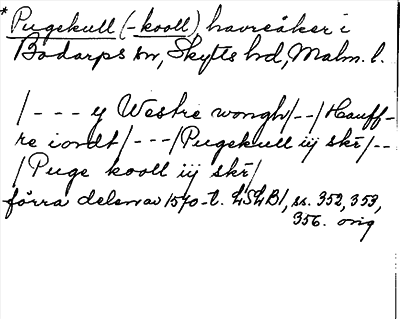 * Pugekull (-kooll), havreåker i
Bodarps sn, Skytts hd, Malm. l.
/- - - y Westre wongh/--/Hauff-
re iordt/---/Pugekull iij skr/--
/Puge kooll iij skr/
förra delen av 1570-t. LSHBl, ss. 352, 353,
356. orig